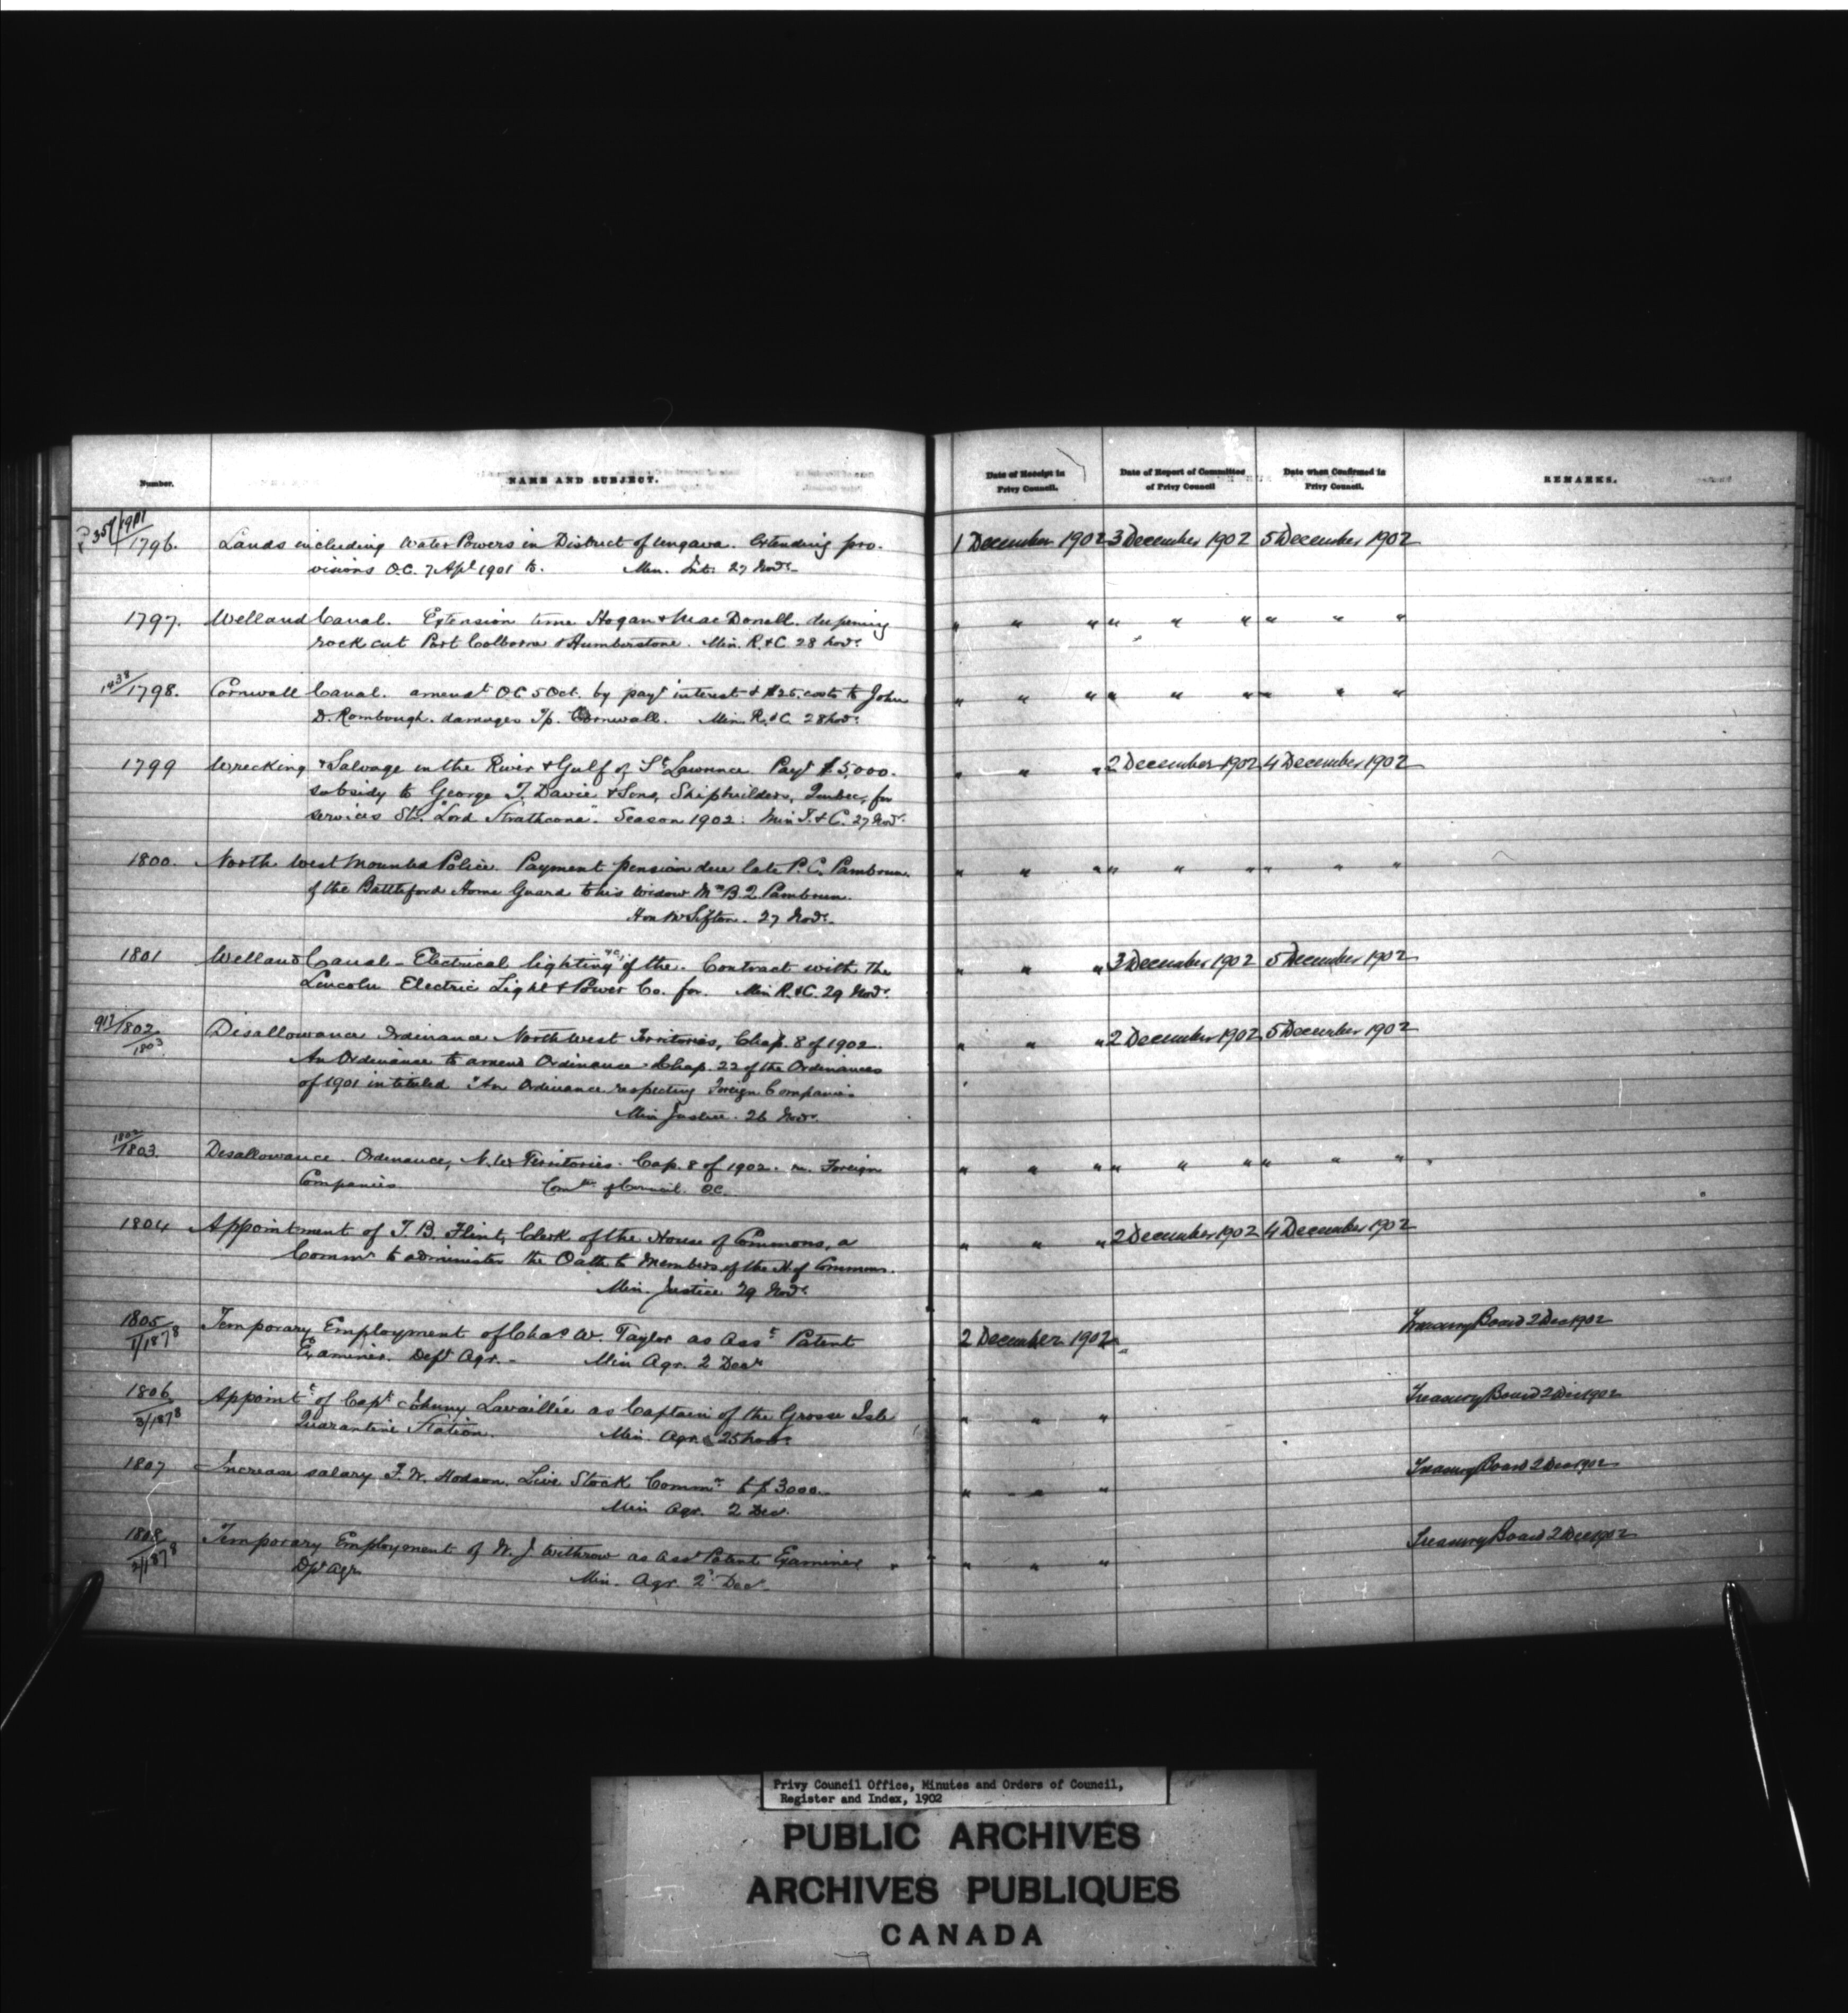 Number.
NAME AND SUBJECT.
Date of Receipt in
Privy Council.
Date of Report of Committee
of Privy Council
Date when Confirmed in
Privy Council.
REMARKS.
1796. Lands including Water Powers in District of Ungava. Extending pro- 1 December 1902 3 December 1902 5 December 1902
visions O.C. 7 Apl 1901 to. Min. Int. 27 Novr.
1797. Welland Canal. Extension time Hogan & MacDonell. deepening " " " " " " " " "
rock cut Port Colborne & Humberstone. Min. R. & C. 28 Novr.
1438/1798. Cornwall Canal. amendt O.C. 5 Oct. by payt interest & $25. costs to John " " " " " " " " "
D. Rombough. damages T/p. Cornwall. Min. R. & C. 28 Novr.
1799 Wrecking & Salvage in the River & Gulf of St Lawrence. Payt $5,000. " " " 2 December 1902 4 December 1902
subsidy to George T. Davie & Sons, Shipbuilders, Quebec, for
services Str. "Lord Strathcona". Season 1902. Min T. & C. 27 Novr.
1800. North West Mounted Police. Payment pension due late P.C. Pambrun. " " " " " " " " "
of the Battleford Home Guard to his widow Mrs B. Q. Pambrun.
Hon Mr Sifton. 27 Novr.
1801 Welland Canal - Electrical lighting &c, of the. Contract with the " " " 3 December 1902 5 December 1902
Lincoln Electric Light & Power Co. for. Min R. & C. 29 Novr.
1802 Disallowance Ordinance North West Territories, Chap. 8 of 1902. " " " 2 December 1902 5 December 1902
1803
An Ordinance to amend Ordinance Chap. 22 of the Ordinances
of 1901 intituled "An Ordinance respecting Foreign Companies
Min Justice. 26 Novr.
1802/1803. Disallowance. Ordinance, N.W. Territories. Cap. 8 of 1902. Foreign " " " " " " " " "
Companies O.C.
1804 Appointment of T. B. Flint, Clerk of the House of Commons, a " " " 2 December 1902 4 December 1902
Commr to administer the Oath to Members of the H of Commons.
Min. Justice 29 Novr.
1805 Temporary Employment of Chas W. Taylor as Asst Patent 2 December 1902 Treasury Board 2 Dec 1902
1/1878
Examiner. Dept Agr. - Min Agr. 2 Decr
1806 Appointt of Capt Johnny Lavaillée as Captain of the Grosse Isle " " " Treasury Board 2 Dec 1902
3/1878
Quarantine Station. Min. Agr. 25 Novr.
1807 Increase salary F. W. Hodson. Live Stock Commr to $3000. " " " Treasury Board 2 Dec 1902
Min Agr. 2 Dec.
1808 Temporary Employment of W. J. Withrow as Asst Patent Examiner " " " Treasury Board 2 Dec 1902
2/1878
Dpt Agr. Min. Agr. 2 Decr.
Privy Council Office, Minutes and Orders of Council,
Register and Index, 1902
PUBLIC ARCHIVES
ARCHIVES PUBLIQUES
CANADA